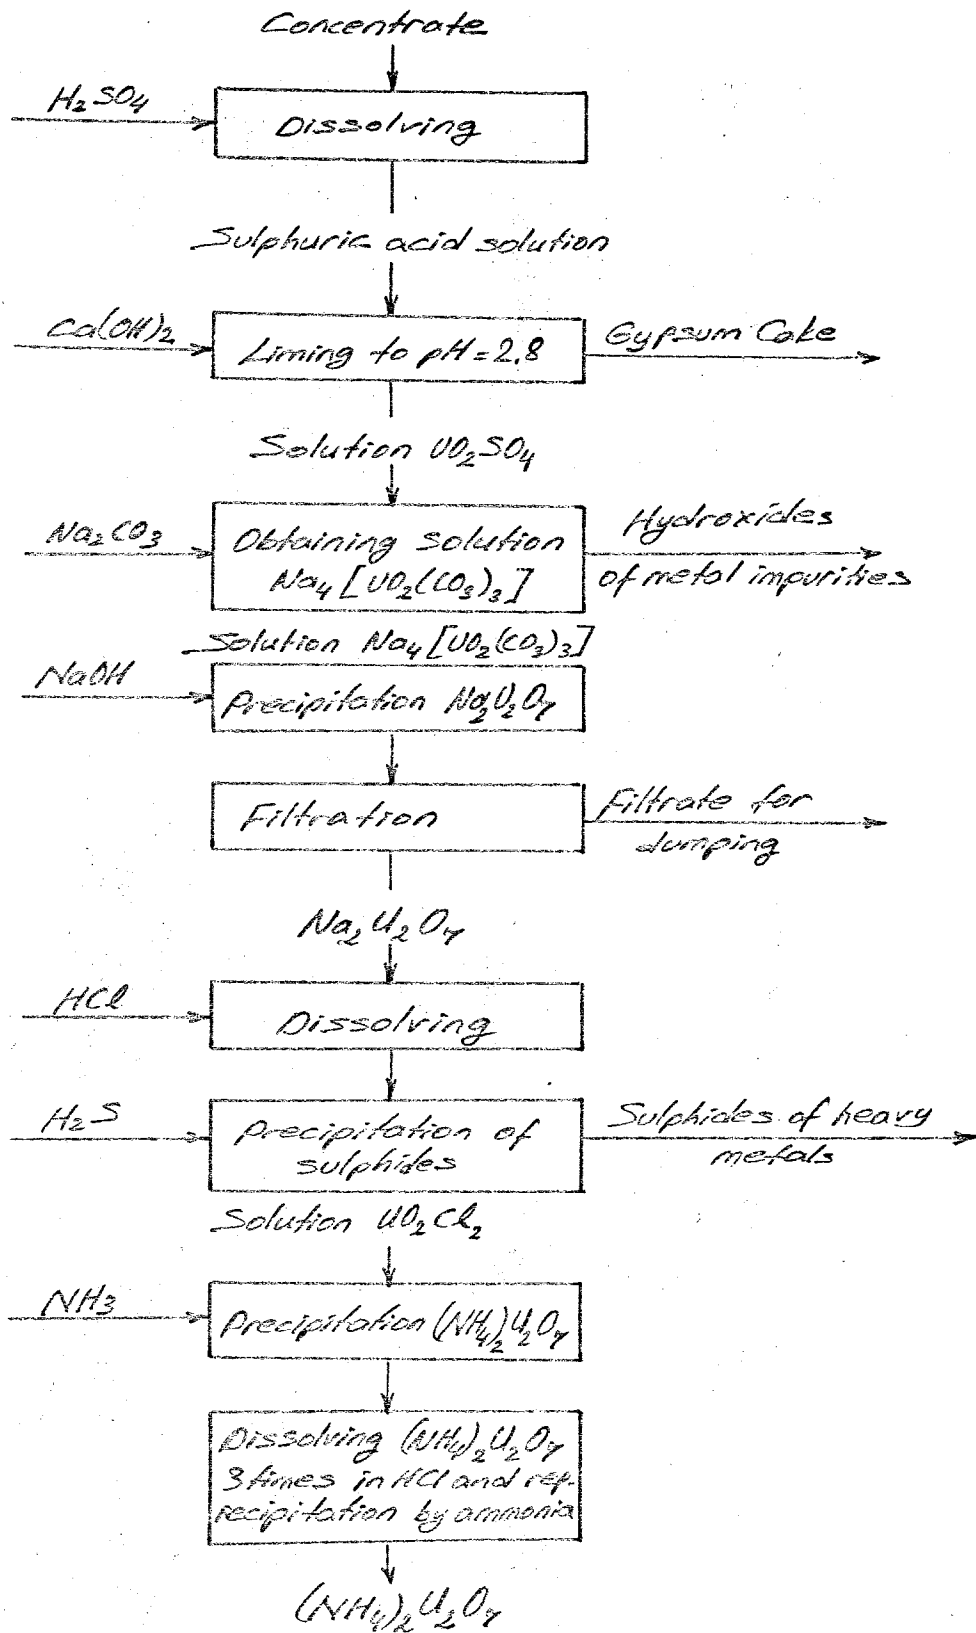 Concentrate
H₂SO₄
Dissolving
Sulphuric acid solution
Ca(OH)₂
Liming to pH=2.8
Gypsum Cake
Solution UO₂SO₄
Na₂CO₃
Obtaining solution
Na₄[UO₂(CO₃)₃]
Hydroxides
of metal impurities
Solution Na₄[UO₂(CO₃)₃]
NaOH
Precipitation Na₂U₂O₇
Filtration
Filtrate for
dumping
Na₂U₂O₇
HCl
Dissolving
H₂S
Precipitation of
sulphides
Sulphides of heavy
metals
Solution UO₂Cl₂
NH₃
Precipitation (NH₄)₂U₂O₇
Dissolving (NH₄)₂U₂O₇
3 times in HCl and rep-
recipitation by ammonia
(NH₄)₂U₂O₇